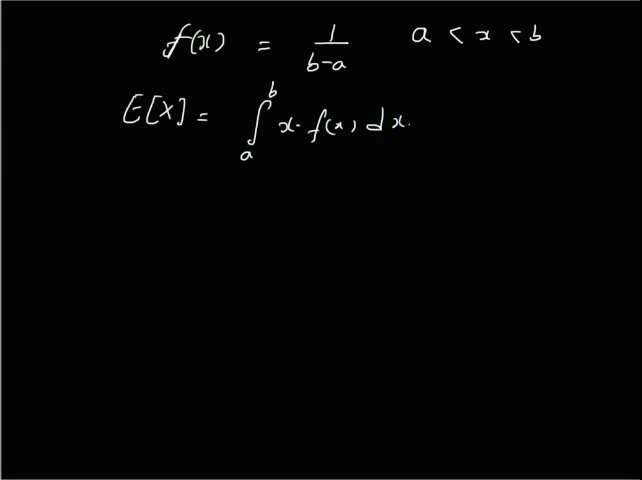 f(x) = 1/(b-a) a < x < b
E[X] = ∫_a^b x. f(x) dx.